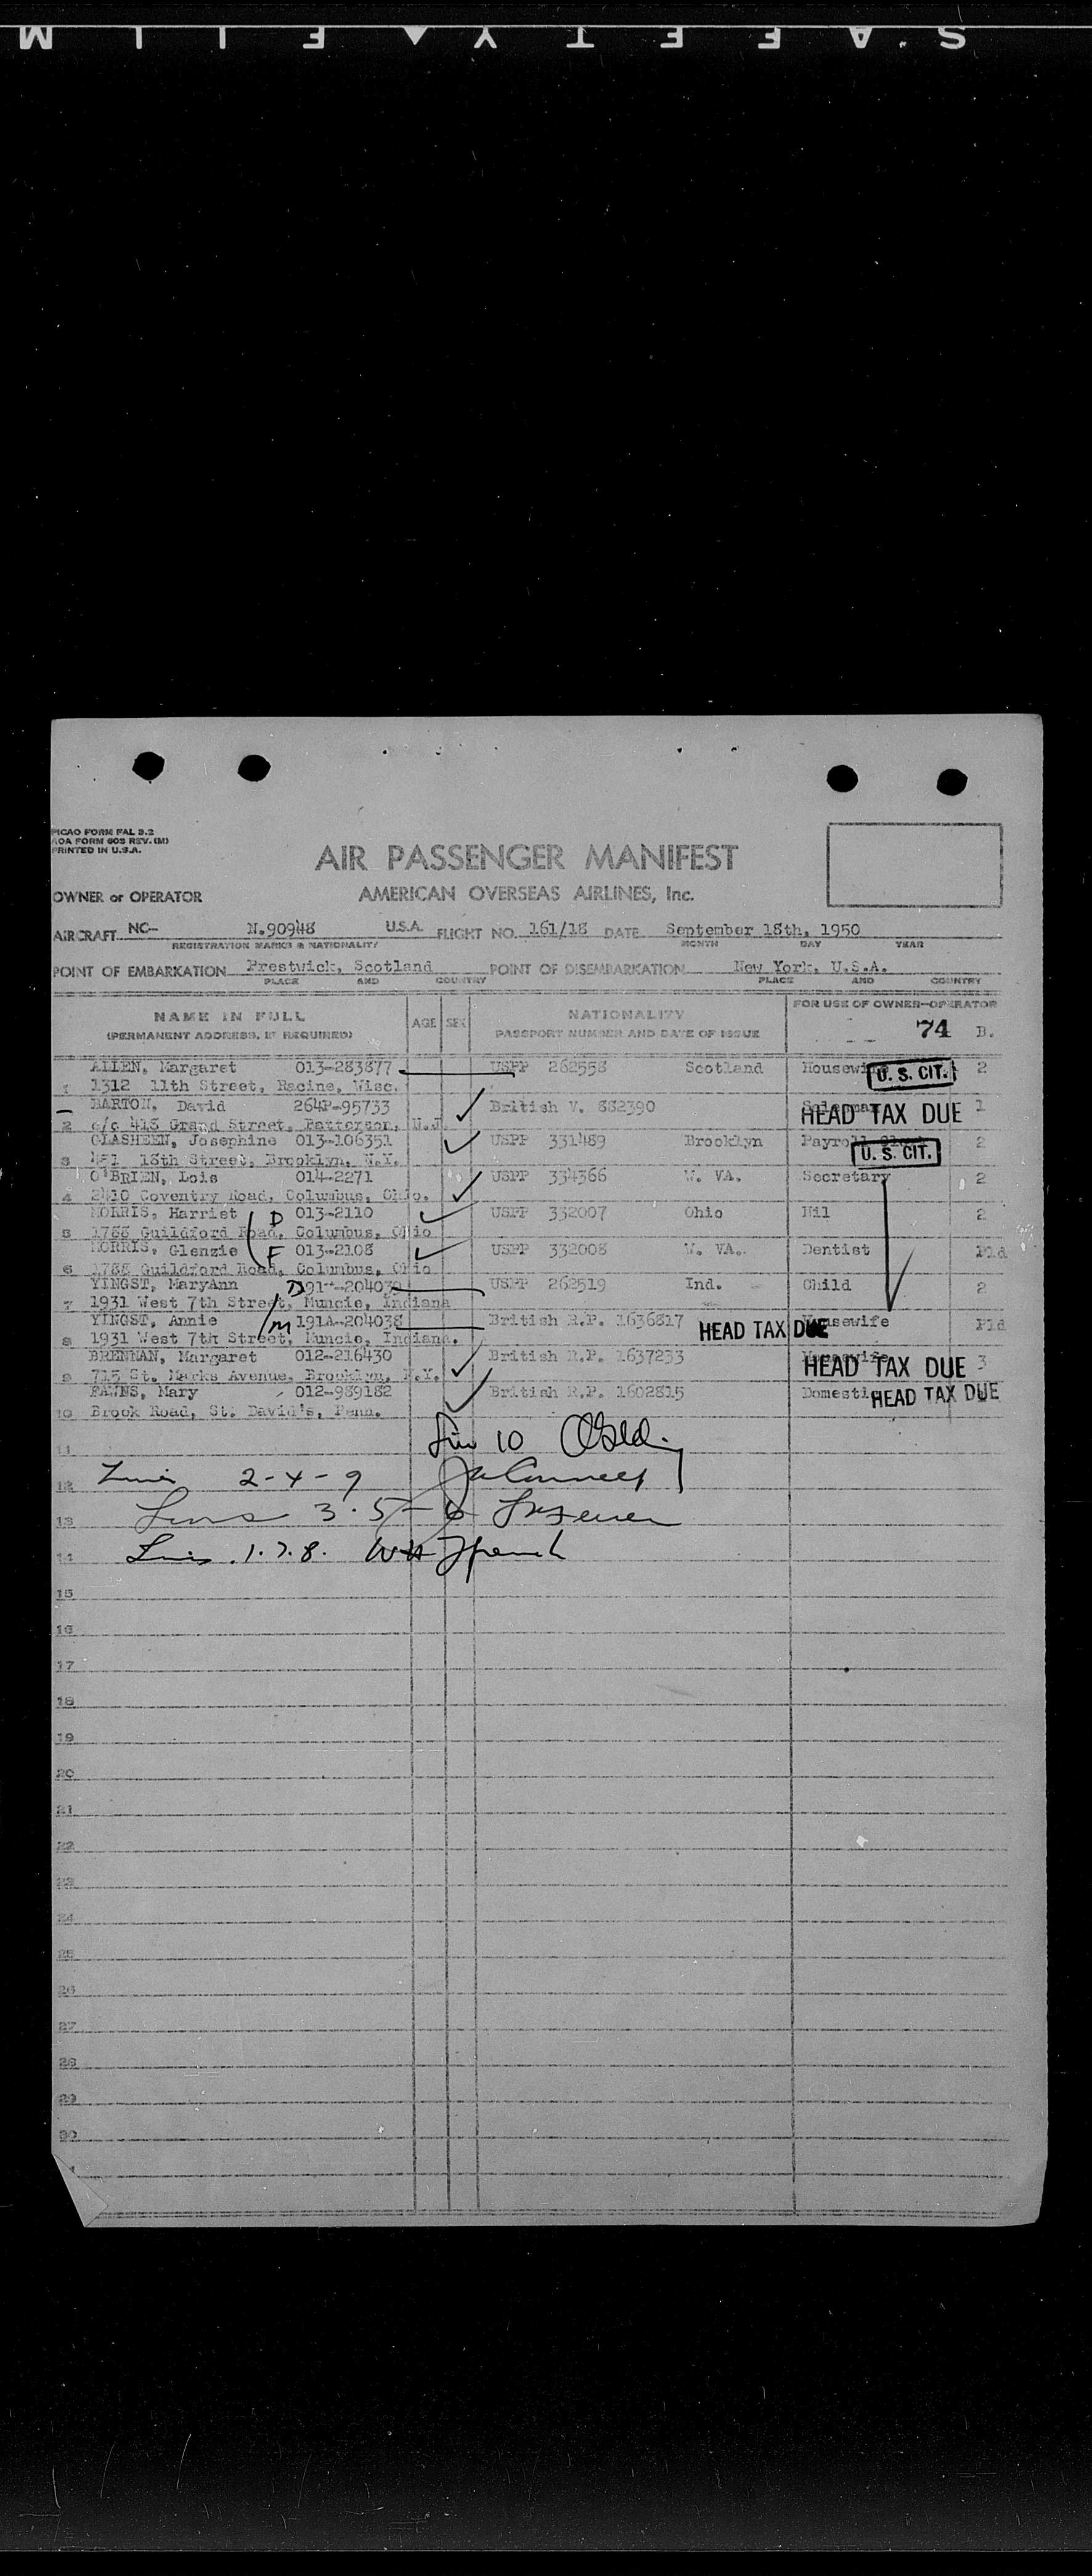 SAFETY▲FILM
PICAO FORM FAL 3.2
AOA FORM 603 REV. (M)
PRINTED IN U.S.A.
AIR PASSENGER MANIFEST
OWNER or OPERATOR AMERICAN OVERSEAS AIRLINES, Inc.
AIRCRAFT NC- N.90948 U.S.A. FLIGHT NO. 161/18 DATE September 18th, 1950
REGISTRATION MARKS & NATIONALITY MONTH DAY YEAR
POINT OF EMBARKATION Prestwick, Scotland POINT OF DISEMBARKATION New York, U.S.A.
PLACE AND COUNTRY PLACE AND COUNTRY
NAME IN FULL AGE SEX NATIONALITY FOR USE OF OWNER-OPERATOR
(PERMANENT ADDRESS, IF REQUIRED) PASSPORT NUMBER AND DATE OF ISSUE 74 B.
ALLEN, Margaret 013-283877 USPP 262558 Scotland Housewife U. S. CIT. 2
1 1312 11th Street, Racine, Wisc.
BARTON, David 264P-95733 British V. 882390 HEAD TAX DUE 1
2 c/o 413 Grand Street, Patterson, N.J.
GLASHEEN, Josephine 013-106351 USPP 331489 Brooklyn Payroll U. S. CIT. 2
3 481 18th Street, Brooklyn, N.Y.
O'BRIEN, Lois 014-2271 USPP 334366 W. VA. Secretary 2
4 2410 Coventry Road, Columbus, Ohio.
MORRIS, Harriet D 013-2110 USPP 332007 Ohio Nil 2
5 1788 Guildford Road, Columbus, Ohio
MORRIS, Glenzie F 013-2108 USPP 332008 W. VA. Dentist Pld
6 1788 Guildford Road, Columbus, Ohio
YINGST, MaryAnn D 191A-204039 USPP 262519 Ind. Child 2
7 1931 West 7th Street, Muncie, Indiana
YINGST, Annie M 191A-204038 British R.P. 1636817 HEAD TAX DUE Housewife Pld
8 1931 West 7th Street, Muncie, Indiana.
BRENNAN, Margaret 012-216430 British R.P. 1637233 Housewife HEAD TAX DUE 3
9 715 St. Marks Avenue, Brooklyn, N.Y.
FAWNS, Mary 012-989182 British R.P. 1602815 Domestic HEAD TAX DUE
10 Brook Road, St. David's, Penn.
11 Line 10
12 Lines 2-4-9
13 Lines 3-5-6
14 Lines 1.7.8. WH French
15
16
17
18
19
20
21
22
23
24
25
26
27
28
29
30